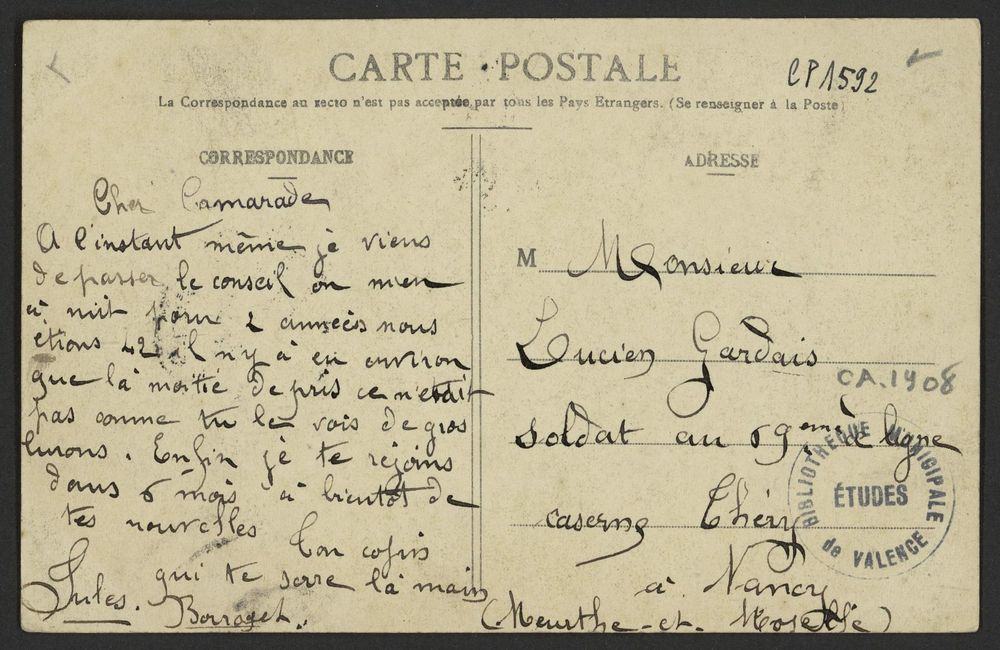 CARTE POSTALE
CP1592
La Correspondance au recto n'est pas acceptée par tous les Pays Etrangers. (Se renseigner à la Poste)
CORRESPONDANCE
Cher Camarade
A l'instant même je viens
de passer le conseil on m'en
à mit pour 2 années nous
etions 42 il n'y à eu environ
que la moitié de pris ce n'etait
pas comme tu le vois de gros
lurons. Enfin je te rejoins
dans 6 mois à bientot de
tes nouvelles Ton copin
qui te serre la main
Jules.
ADRESSE
M Monsieur
Lucien Gardais
CA.1908
soldat au 69eme de ligne
caserne Théry
à Nancy
(Meurthe-et-Moselle)
BIBLIOTHEQUE MUNICIPALE
ÉTUDES
de VALENCE